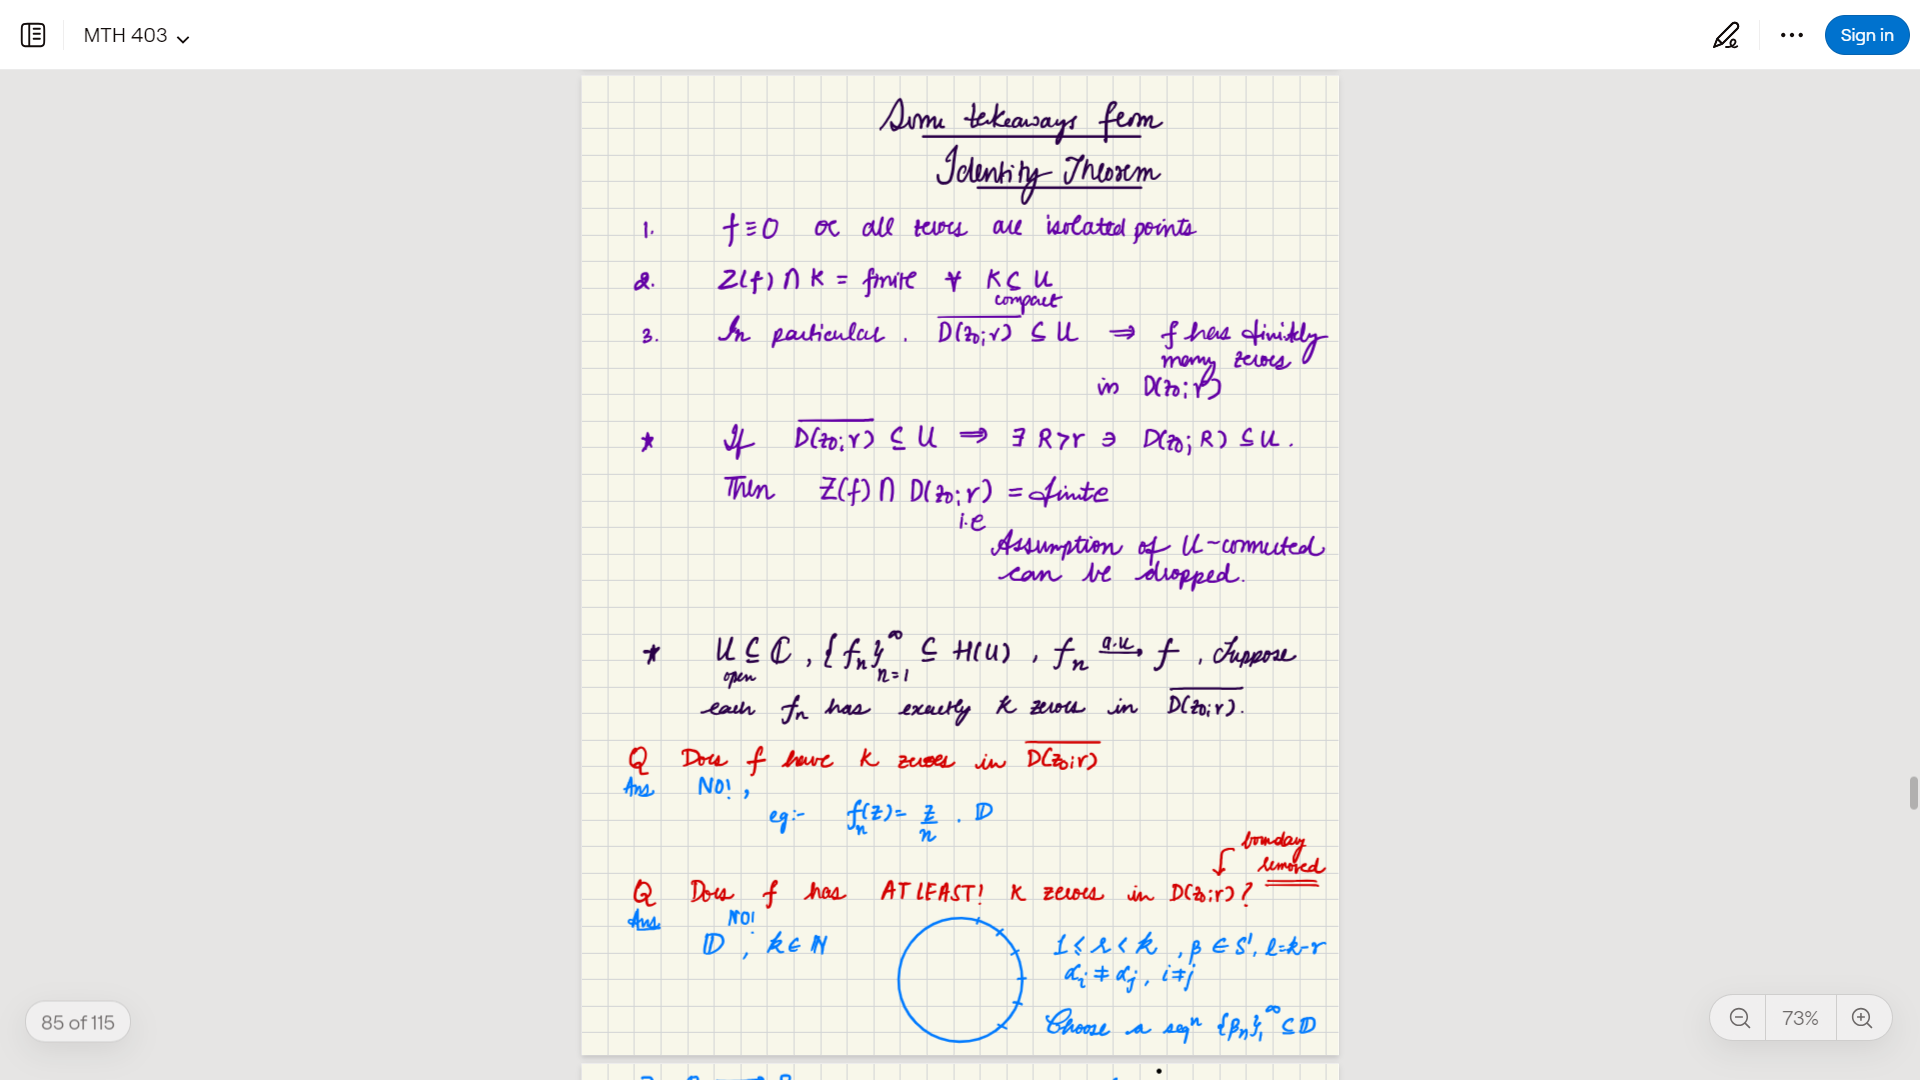 MTH 403
Sign in
Some takeaways from
Identity Theorem
1. f ≡ 0 or all zeroes are isolated points
2. Z(f) ∩ K = finite ∀ K ⊆ U
compact
3. In particular. D(z₀;r)‾ ⊆ U ⇒ f has finitely
many zeroes
in D(z₀;r)
* If D(z₀;r)‾ ⊆ U ⇒ ∃ R>r ∋ D(z₀;R) ⊆ U.
Then Z(f) ∩ D(z₀;r) = finite
i.e
Assumption of U-connected
can be dropped.
* U ⊆ ℂ, {fₙ}ₙ₌₁^∞ ⊆ H(U), fₙ →(a.u) f, Suppose
open
each fₙ has exactly k zeroes in D(z₀;r)‾.
Q Does f have k zeroes in D(z₀;r)‾
Ans NO!,
eg:- fₙ(z) = z/n . 𝔻
boundary
removed
Q Does f has AT LEAST! k zeroes in D(z₀;r)?
Ans NO!
𝔻 ; k ∈ ℕ
1 ≤ r < k, β ∈ S¹, l = k-r
αᵢ ≠ αⱼ, i≠j
Choose a seqⁿ {βₙ}₁^∞ ⊆ 𝔻
85 of 115
73%